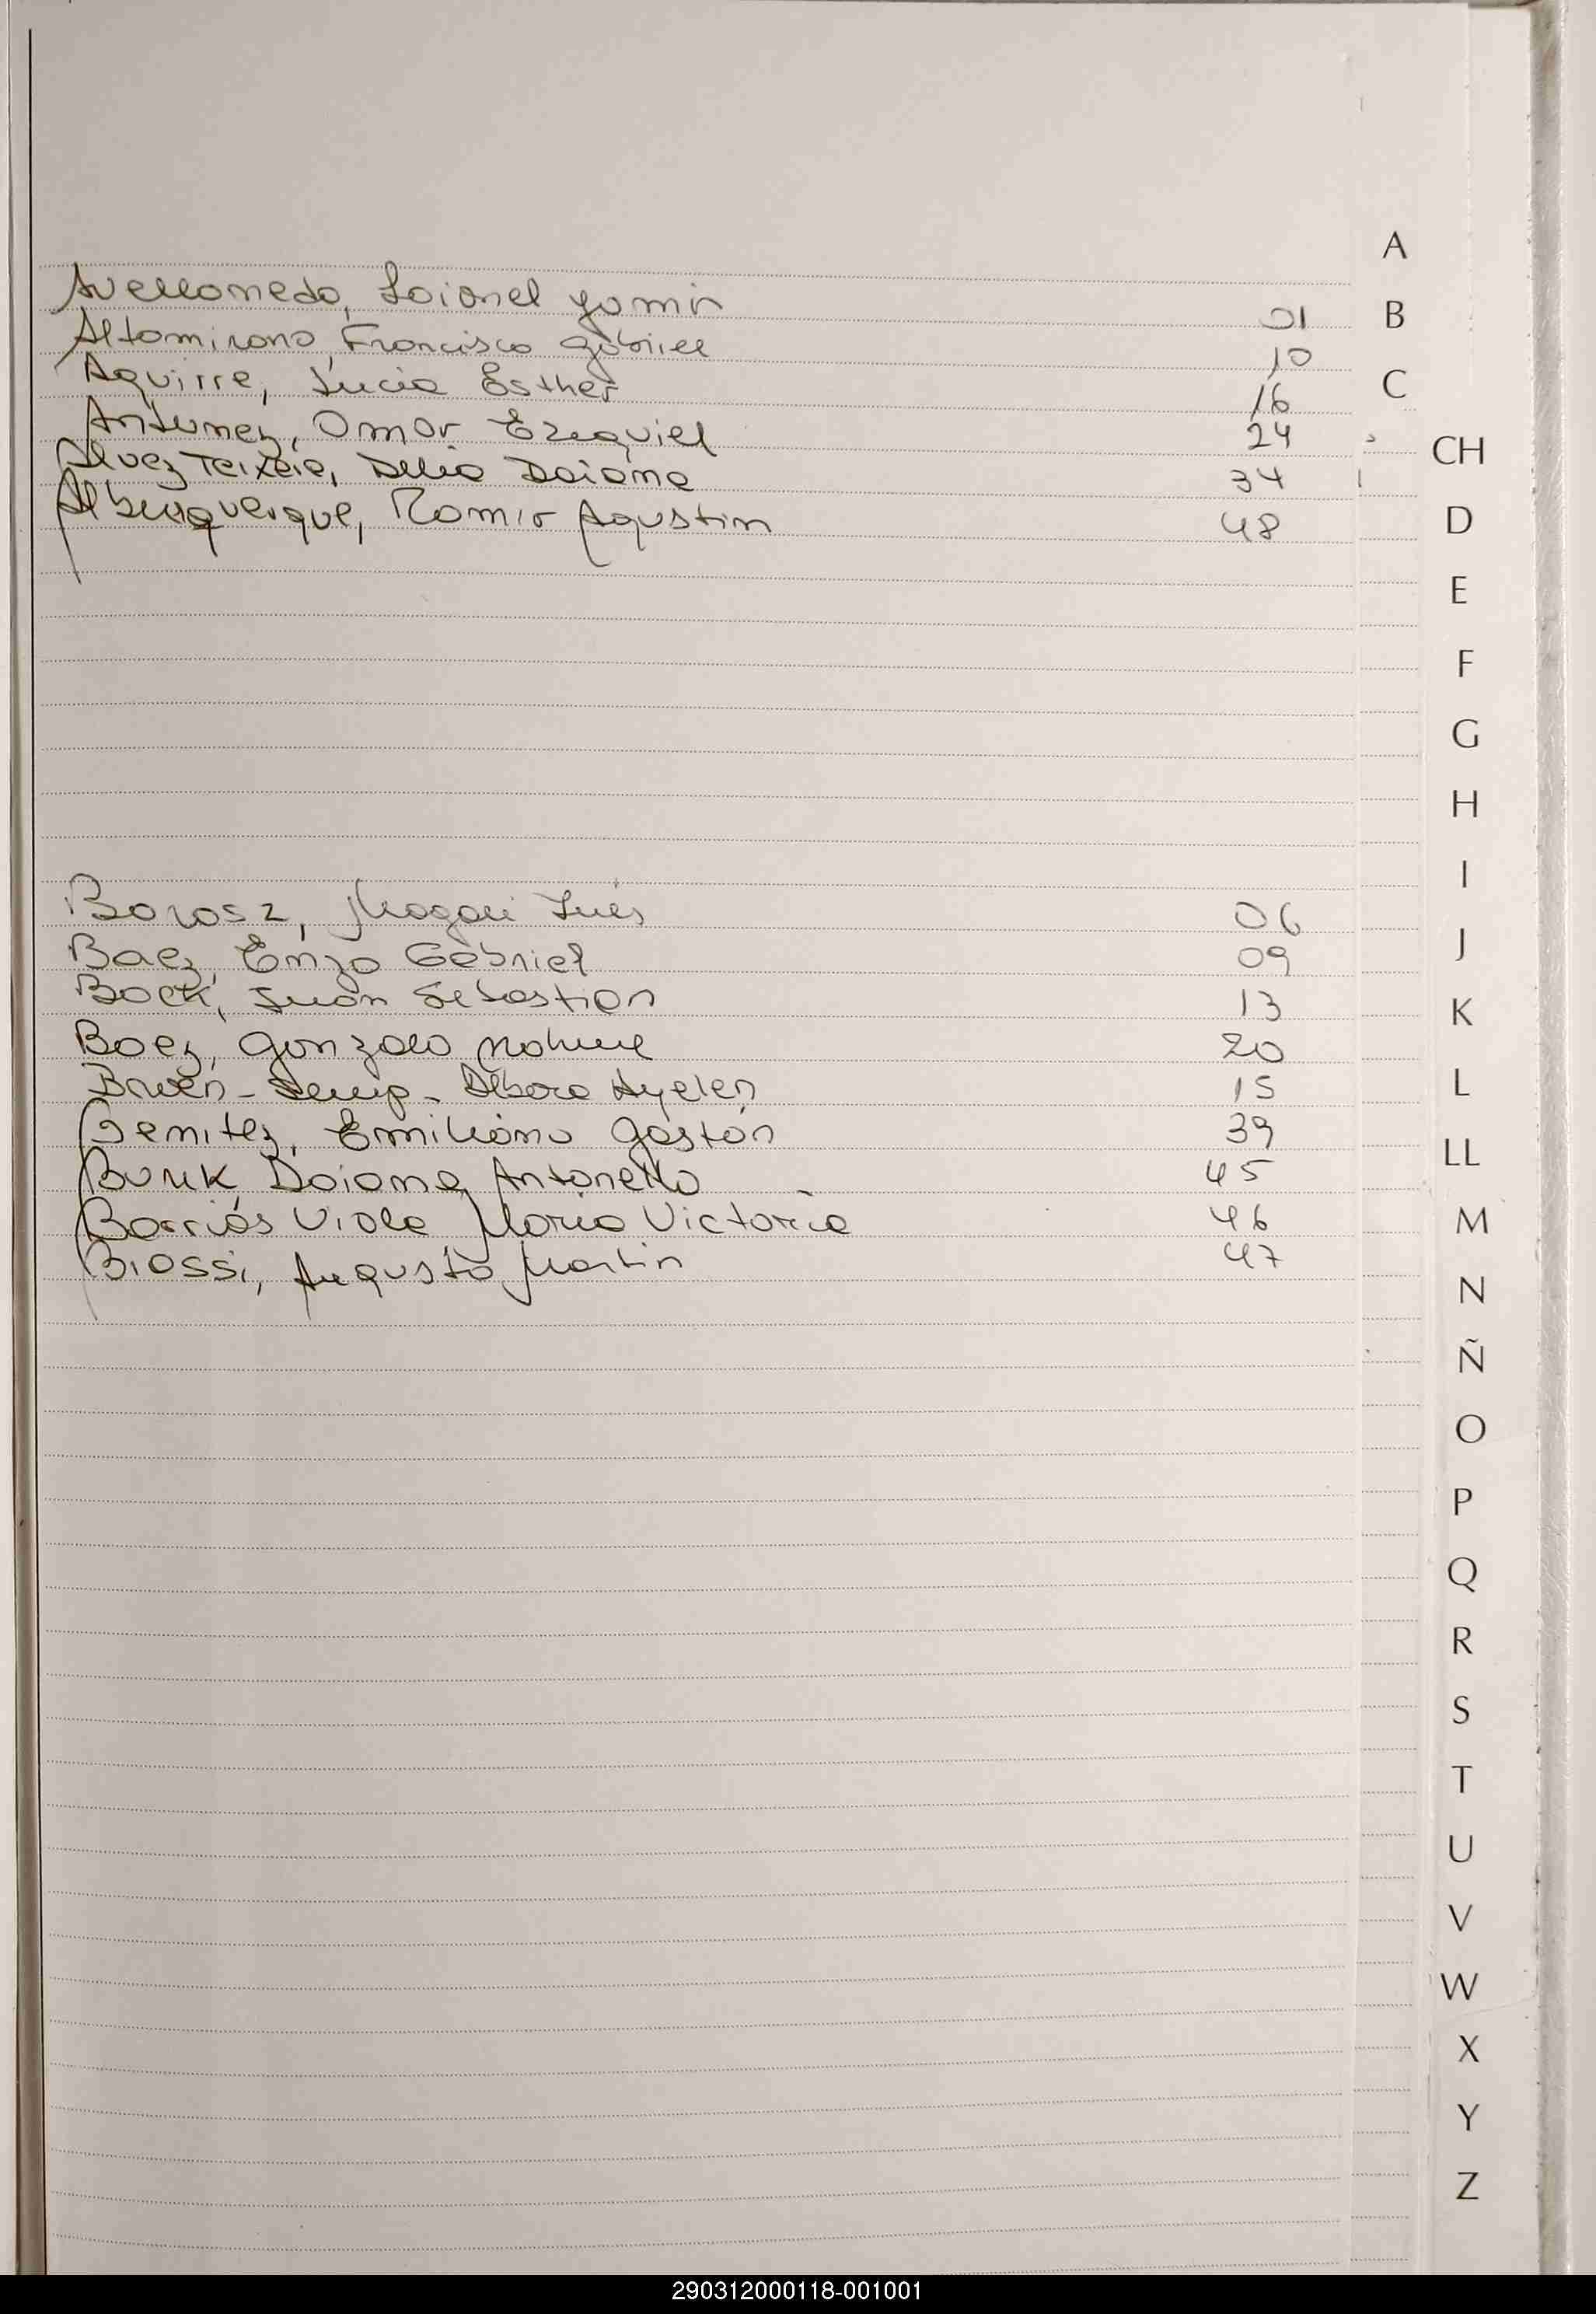 Avellaneda, Loionel Yamir 01
Altamirano, Francisco Gabriel 10
Aguirre, Lucia Esther 16
Antunez, Omar Ezequiel 24
Alvez Teixeie, Delia Daiana 34
Alburquerque, Ramir Agustin 48
Borosz, Magali Inés 06
Baez, Enzo Gabriel 09
Bock, Juan Sebastian 13
Baez, Gonzalo Nahuel 20
Ayelen 15
Benitez, Emiliano Gastón 39
Bunk, Daiana Antonella 45
Barrios Viola, Maria Victoria 46
Biassi, Augusto Martin 47
A
B
C
CH
D
E
F
G
H
I
J
K
L
LL
M
N
Ñ
O
P
Q
R
S
T
U
V
W
X
Y
Z
290312000118-001001